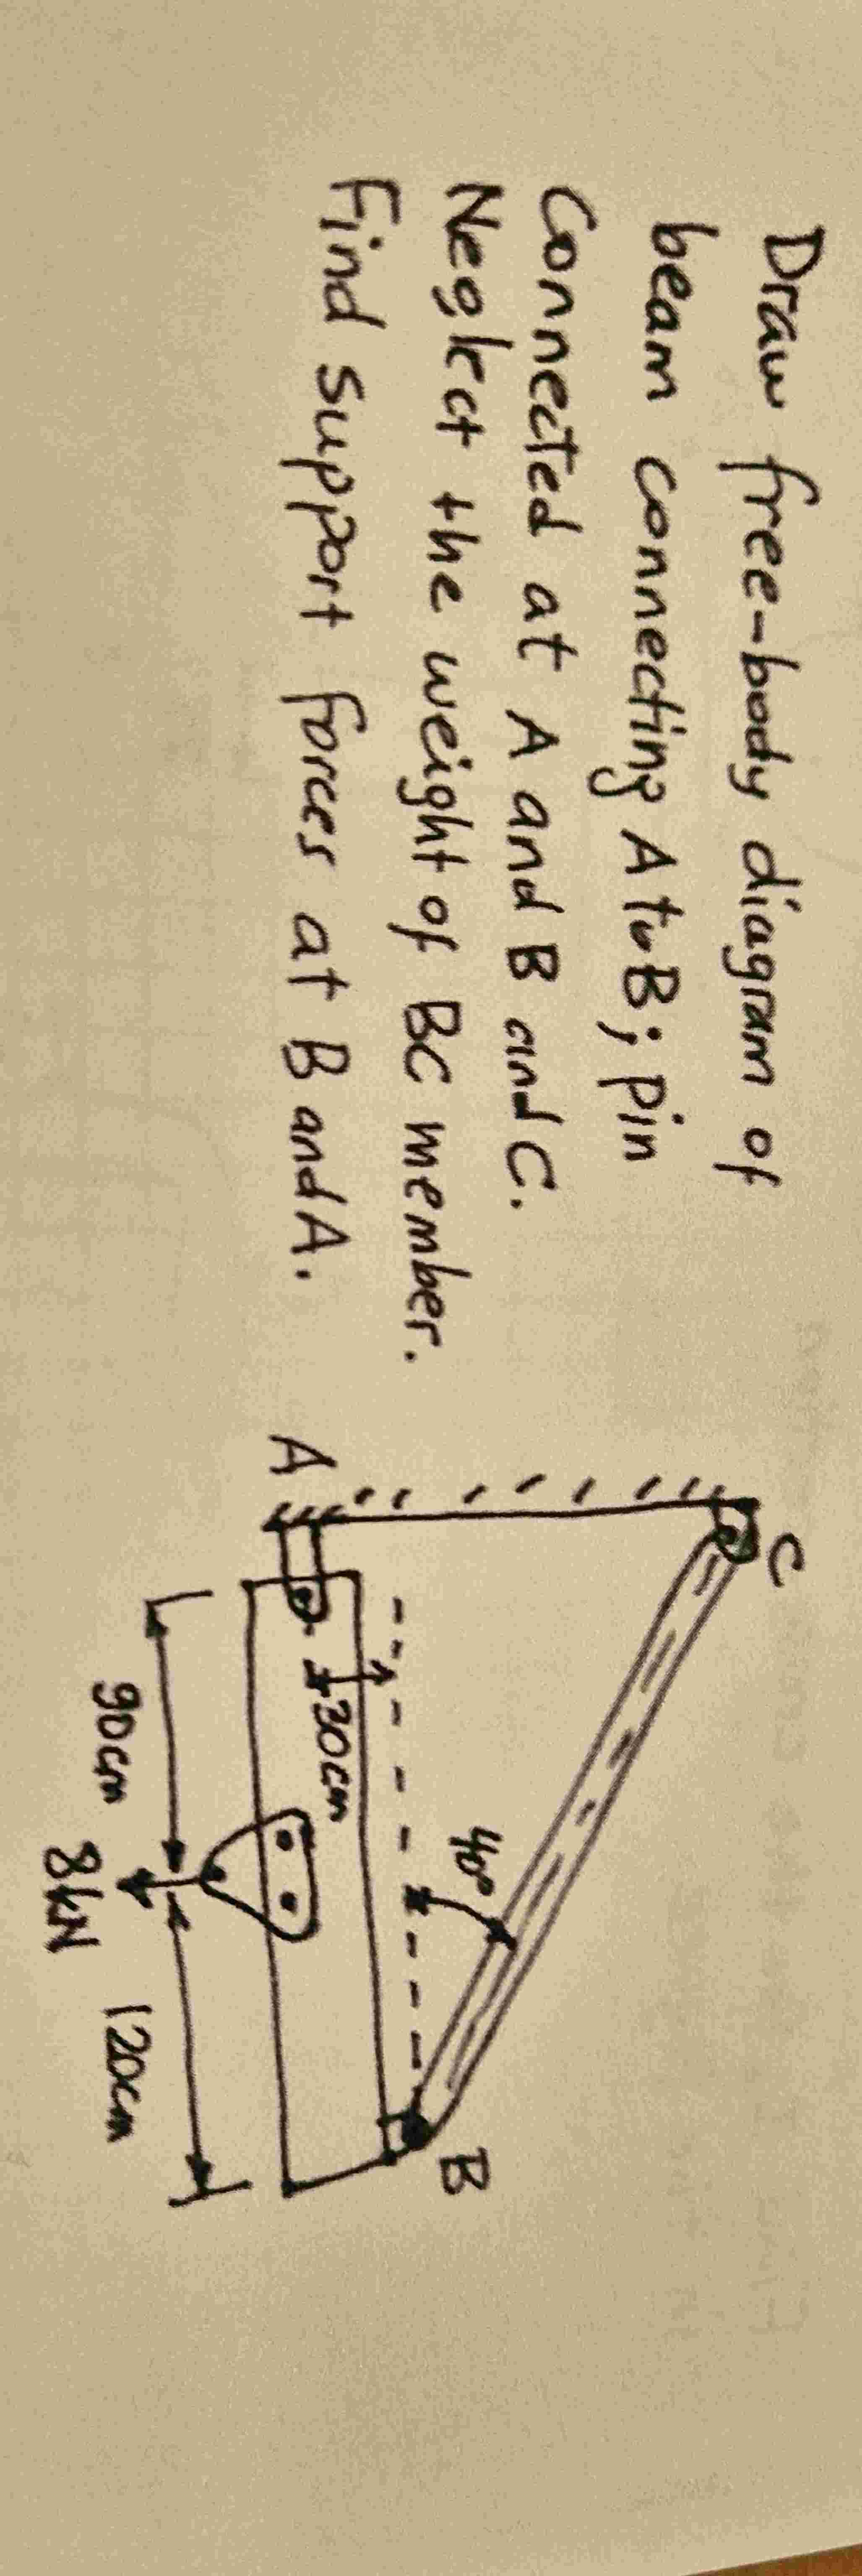 Draw free-body diagram of
beam connecting A to B; pin
Connected at A and B and C.
Neglect the weight of BC member.
Find support forces at B and A.
C
40°
B
A
30cm
90cm
120cm
8kN